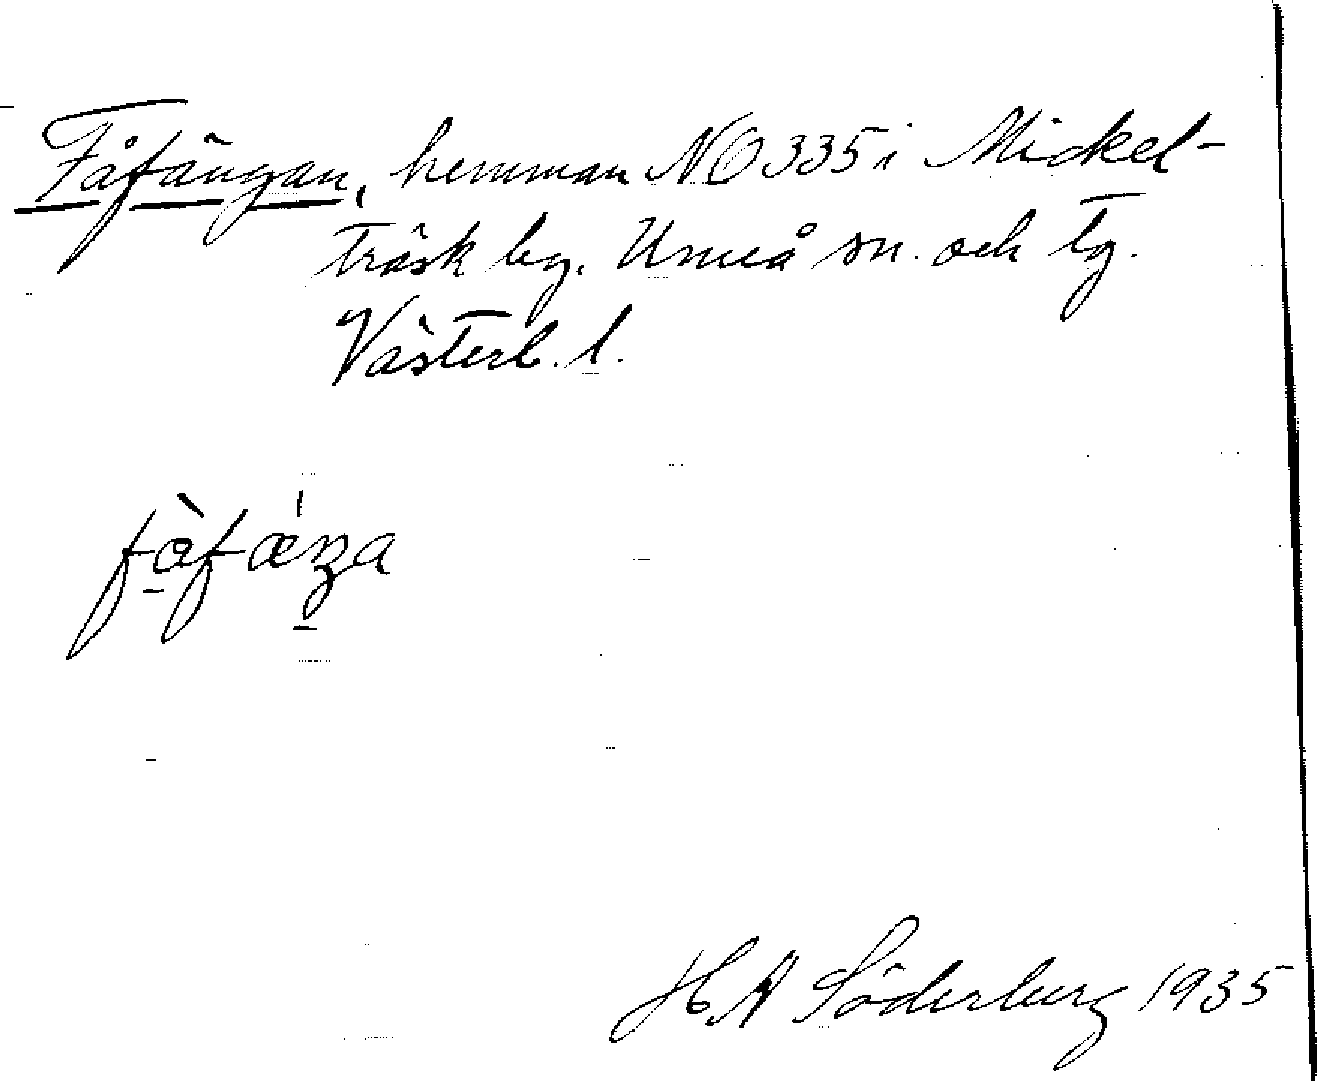 Fåfängan, hemman NO 335 i Mickel-
träsk by. Umeå sn. och tg.
Västerb. l.
fåfæŋa
H. A Söderberg 1935